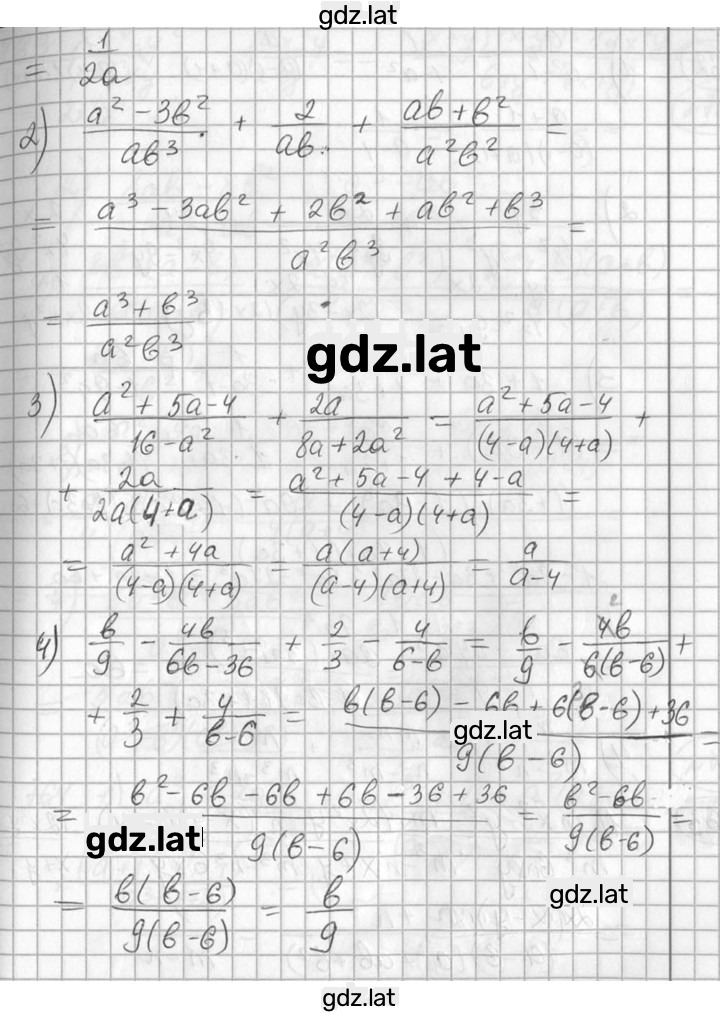 gdz.lat
= 1/(2a)
2) (a² - 3в²)/(aв³) + 2/(aв) + (aв + в²)/(a²в²) =
= (a³ - 3aв² + 2в² + aв² + в³)/(a²в³) =
= (a³ + в³)/(a²в³)
gdz.lat
3) (a² + 5a - 4)/(16 - a²) + 2a/(8a + 2a²) = (a² + 5a - 4)/((4-a)(4+a)) +
+ 2a/(2a(4+a)) = (a² + 5a - 4 + 4 - a)/((4-a)(4+a)) =
= (a² + 4a)/((4-a)(4+a)) = (a(a+4))/((a-4)(a+4)) = a/(a-4)
4) в/9 - 4в/(6в - 36) + 2/3 - 4/(6-в) = в/9 - 4в/(6(в-6)) +
+ 2/3 + 4/(в-6) = (в(в-6) - 6в + 6(в-6) + 36)/(9(в-6)) =
gdz.lat
= (в² - 6в - 6в + 6в - 36 + 36)/(9(в-6)) = (в² - 6в)/(9(в-6)) =
gdz.lat
= (в(в-6))/(9(в-6)) = в/9
gdz.lat
gdz.lat